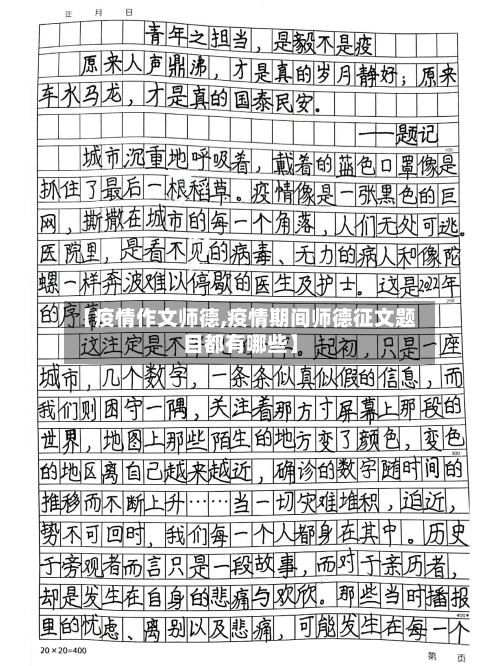 年 月 日
青年之担当，是毅不是疫
原来人声鼎沸，才是真的岁月静好；原来
车水马龙，才是真的国泰民安。
——题记
100
城市沉重地呼吸着，戴着的蓝色口罩像是
抓住了最后一根稻草。疫情像是一张黑色的巨
网，撕撒在城市的每一个角落，人们无处可逃。
医院里，是看不见的病毒、无力的病人和像陀
螺一样奔波难以停歇的医生及护士。这是2022年
200
的序幕
【疫情作文师德,疫情期间师德征文题
目都有哪些】
这注定是不 。起初，只是一座
城市，几个数字，一条条似真似假的信息，而
我们则困守一隅，关注着那方寸屏幕上那段的
世界，地图上那些陌生的地方变了颜色，变色
300
的地区离自己越来越近，确诊的数字随时间的
推移而不断上升……当一切灾难堆积，迫近，
势不可回时，我们每一个人都身在其中。历史
于旁观者而言只是一段故事，而对于亲历者，
却是发生在自身的悲痛与欢欣。那些当时播报
400
里的忧虑、离别以及悲痛，可能发生在每一个
20×20=400
第 页